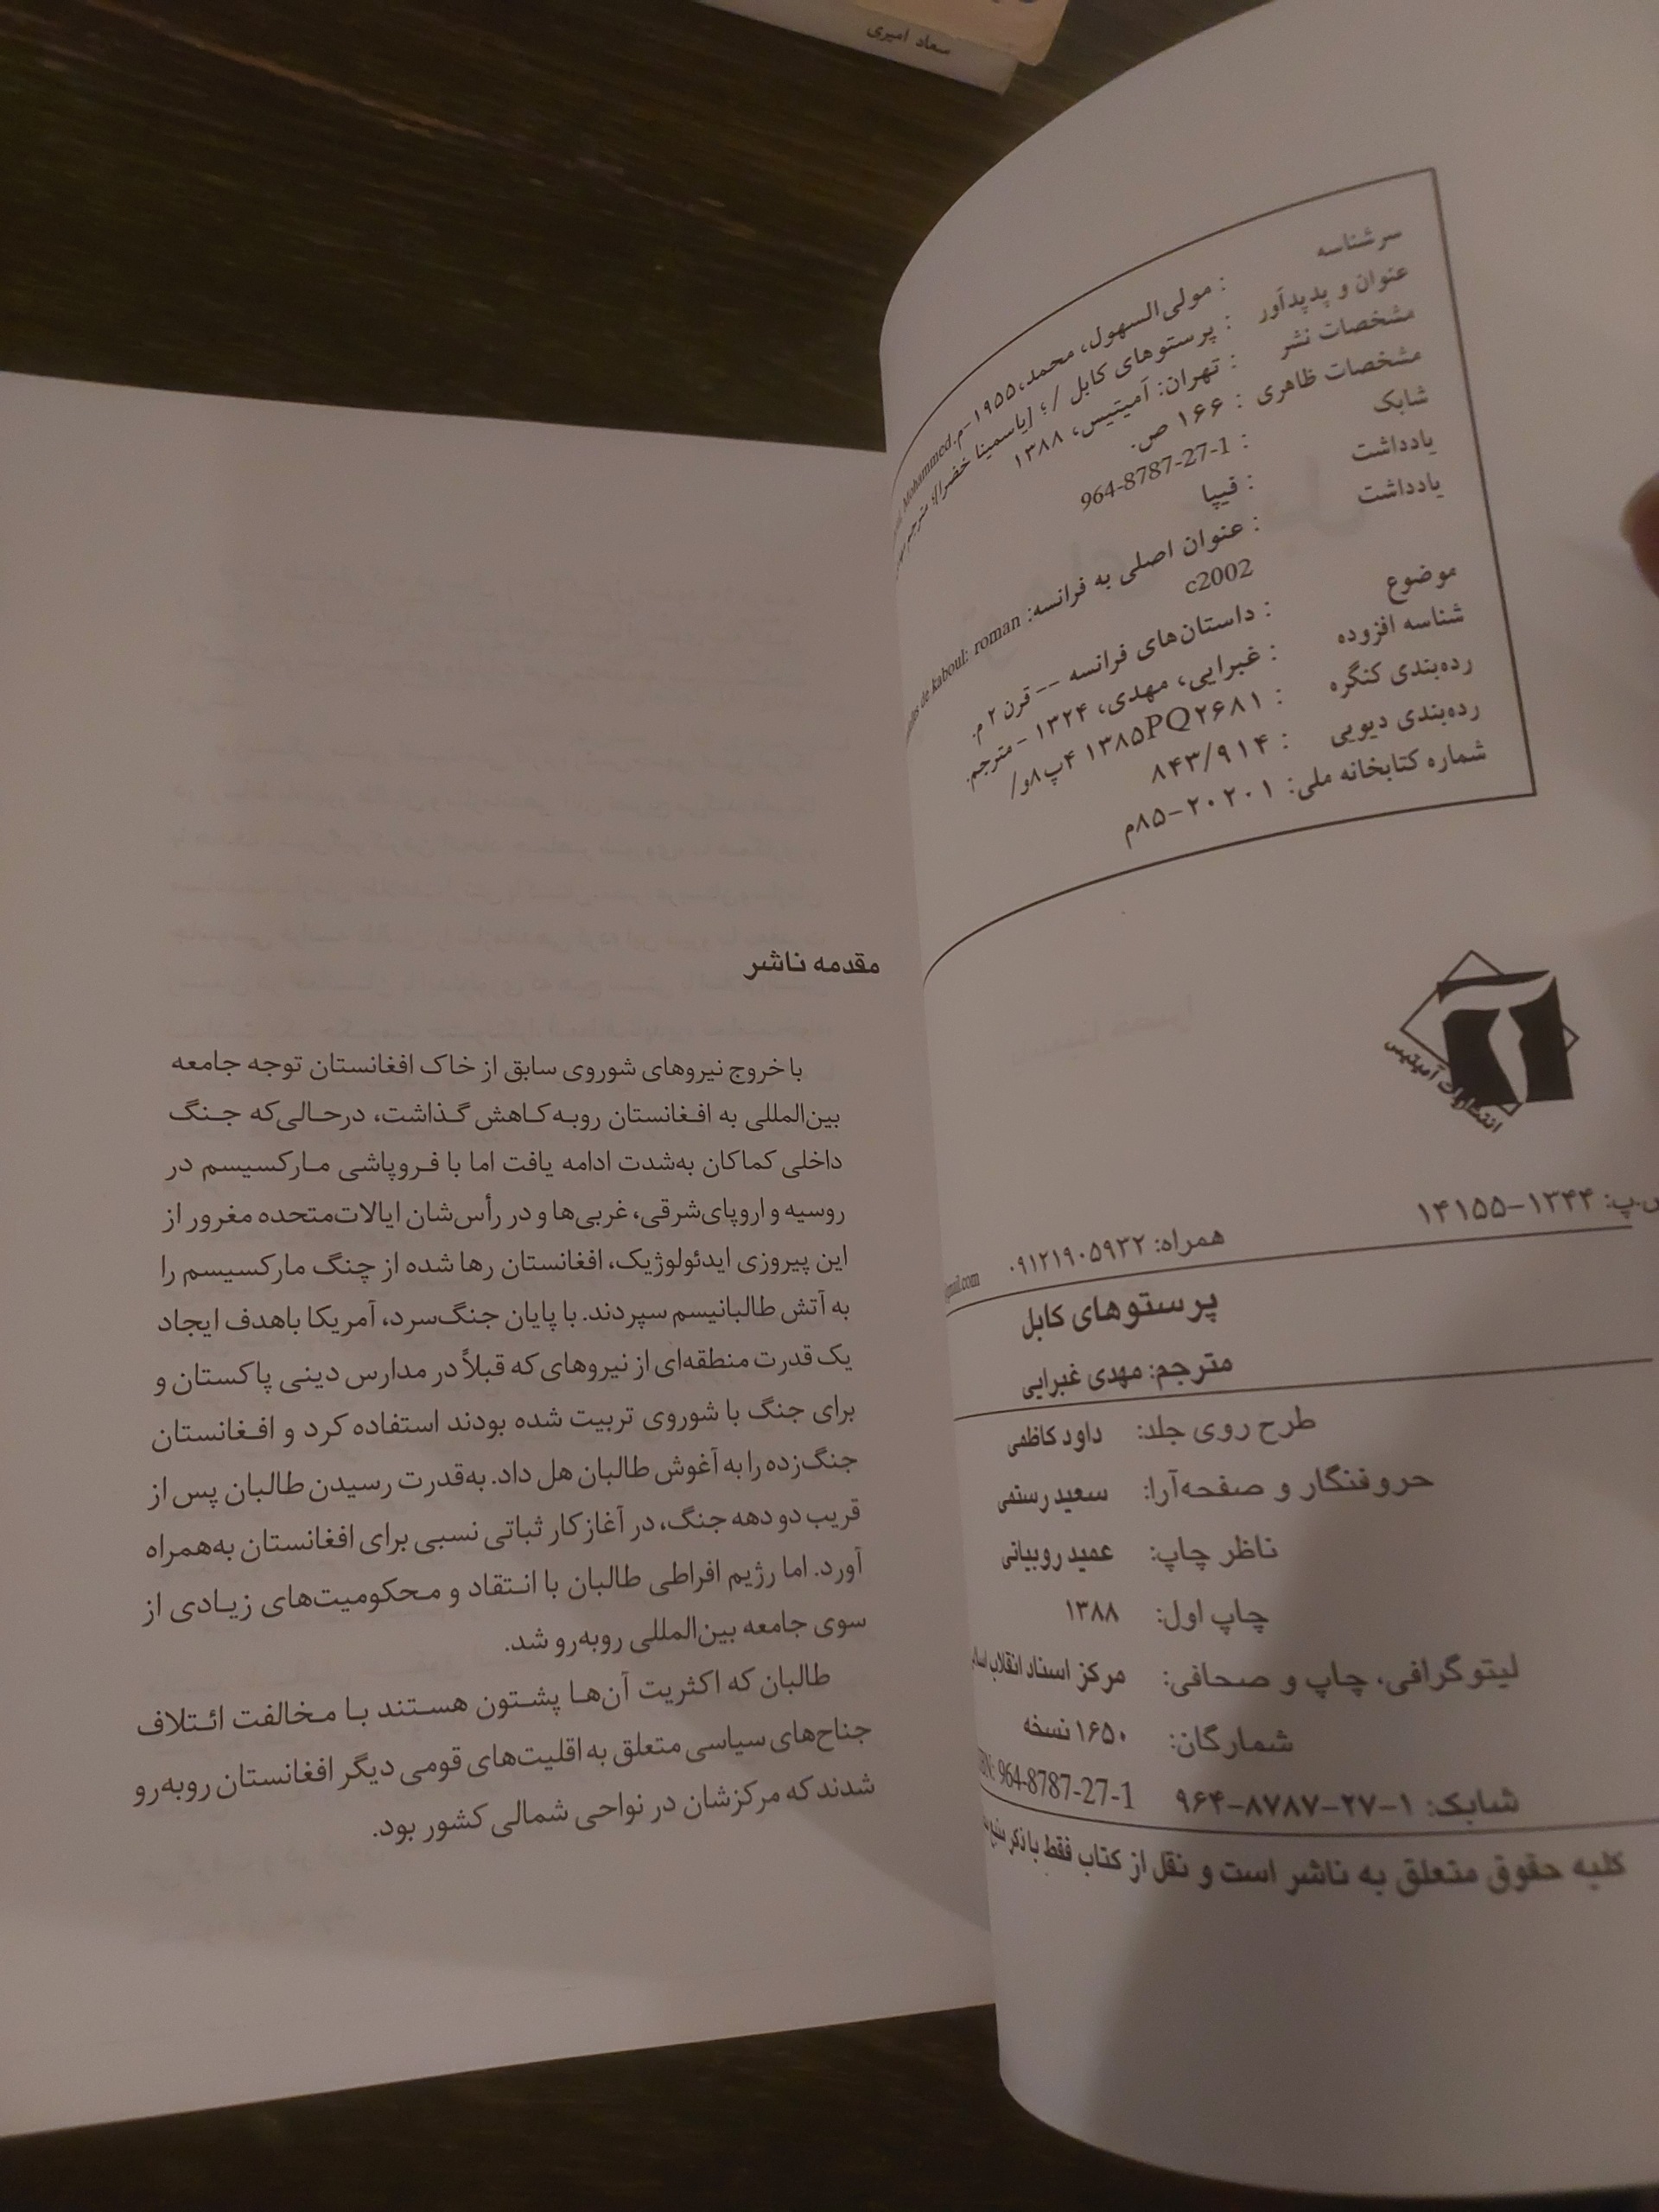 سعاد امیری
سرشناسه : مولی‌السهول، محمد، ۱۹۵۵-م. Mohammed
عنوان و پدیدآور : پرستوهای کابل / ؛ [یاسمینا خضرا]؛ مترجم
مشخصات نشر : تهران: آمیتیس، ۱۳۸۸
مشخصات ظاهری : ۱۶۶ ص.
شابک : 964-8787-27-1
یادداشت : فیپا
یادداشت : عنوان اصلی به فرانسه: de kaboul: roman
c2002
موضوع : داستان‌های فرانسه -- قرن ۲ م.
شناسه افزوده : غبرایی، مهدی، ۱۳۲۴ - مترجم.
رده‌بندی کنگره : ۱۳۸۵PQ۲۶۸۱ ۴پ۸و/
رده‌بندی دیویی : ۸۴۳/۹۱۴
شماره کتابخانه ملی: ۲۰۲۰۱-۸۵م
انتشارات آمیتیس
پ: ۱۳۴۴-۱۴۱۵۵
همراه: ۰۹۱۲۱۹۰۵۹۳۲
gmail.com
پرستوهای کابل
مترجم: مهدی غبرایی
طرح روی جلد: داود کاظمی
حروفنگار و صفحه‌آرا: سعید رستمی
ناظر چاپ: عمید روبیانی
چاپ اول: ۱۳۸۸
لیتوگرافی، چاپ و صحافی: مرکز اسناد انقلاب
شمارگان: ۱۶۵۰ نسخه
شابک: ۱-۲۷-۸۷۸۷-۹۶۴ 964-8787-27-1
کلیه حقوق متعلق به ناشر است و نقل از کتاب فقط با ذکر منبع
مقدمه ناشر
با خروج نیروهای شوروی سابق از خاک افغانستان توجه جامعه
بین‌المللی به افغانستان روبه‌کاهش گذاشت، درحالی‌که جنگ
داخلی کماکان به‌شدت ادامه یافت اما با فروپاشی مارکسیسم در
روسیه و اروپای‌شرقی، غربی‌ها و در رأس‌شان ایالات‌متحده مغرور از
این پیروزی ایدئولوژیک، افغانستان رها شده از چنگ مارکسیسم را
به آتش طالبانیسم سپردند. با پایان جنگ‌سرد، آمریکا باهدف ایجاد
یک قدرت منطقه‌ای از نیروهای که قبلاً در مدارس دینی پاکستان و
برای جنگ با شوروی تربیت شده بودند استفاده کرد و افغانستان
جنگ‌زده را به آغوش طالبان هل داد. به‌قدرت رسیدن طالبان پس از
قریب دو دهه جنگ، در آغاز کار ثباتی نسبی برای افغانستان به‌همراه
آورد. اما رژیم افراطی طالبان با انتقاد و محکومیت‌های زیادی از
سوی جامعه بین‌المللی روبه‌رو شد.
طالبان که اکثریت آن‌ها پشتون هستند با مخالفت ائتلاف
جناح‌های سیاسی متعلق به اقلیت‌های قومی دیگر افغانستان روبه‌رو
شدند که مرکزشان در نواحی شمالی کشور بود.